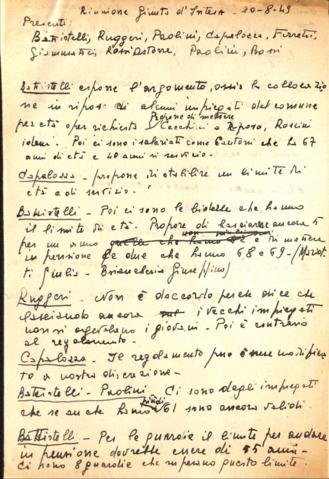 Riunione Giunta d'Intesa - 20-8-49
Presenti:
Battistelli, Ruggeri, Paolini, Capalozza, Ferretti,
Giammattei Rossi Pastore, Paolini, Bossi
Battistelli espone l'argomento, ossia la collocazio
ne in riposo di alcuni impiegati del comune
Propone di mettere
per età o per richiesta Cecchini a riposo, Roscini
idem. Poi ci sono i salariati come Cantoni che ha 67
anni di età e 40 anni di servizio.
Capalozza - propone di stabilire un limite di
età o di servizio.
Battistelli - Poi ci sono le bidelle che hanno
il limite di età. Propone di lasciarne ancora
per un anno e di mettere
in pensione le due che hanno 68 e 69 -
ti Giulia - Giuseppina
Ruggeri - Non è d'accordo perché dice che
lasciando ancora i vecchi impiegati
non si agevolano i giovani. Poi è contrario
al regolamento.
Capalozza - Il regolamento può essere modifica
to a nostra discrezione -
Battistelli - Paolini - Ci sono degli impiegati
che se anche hanno 61 sono ancora validi
Battistelli - Per le guardie il limite per andare
in pensione dovrebbe essere di 55 anni -
ci sono 8 guardie che superano questo limite.